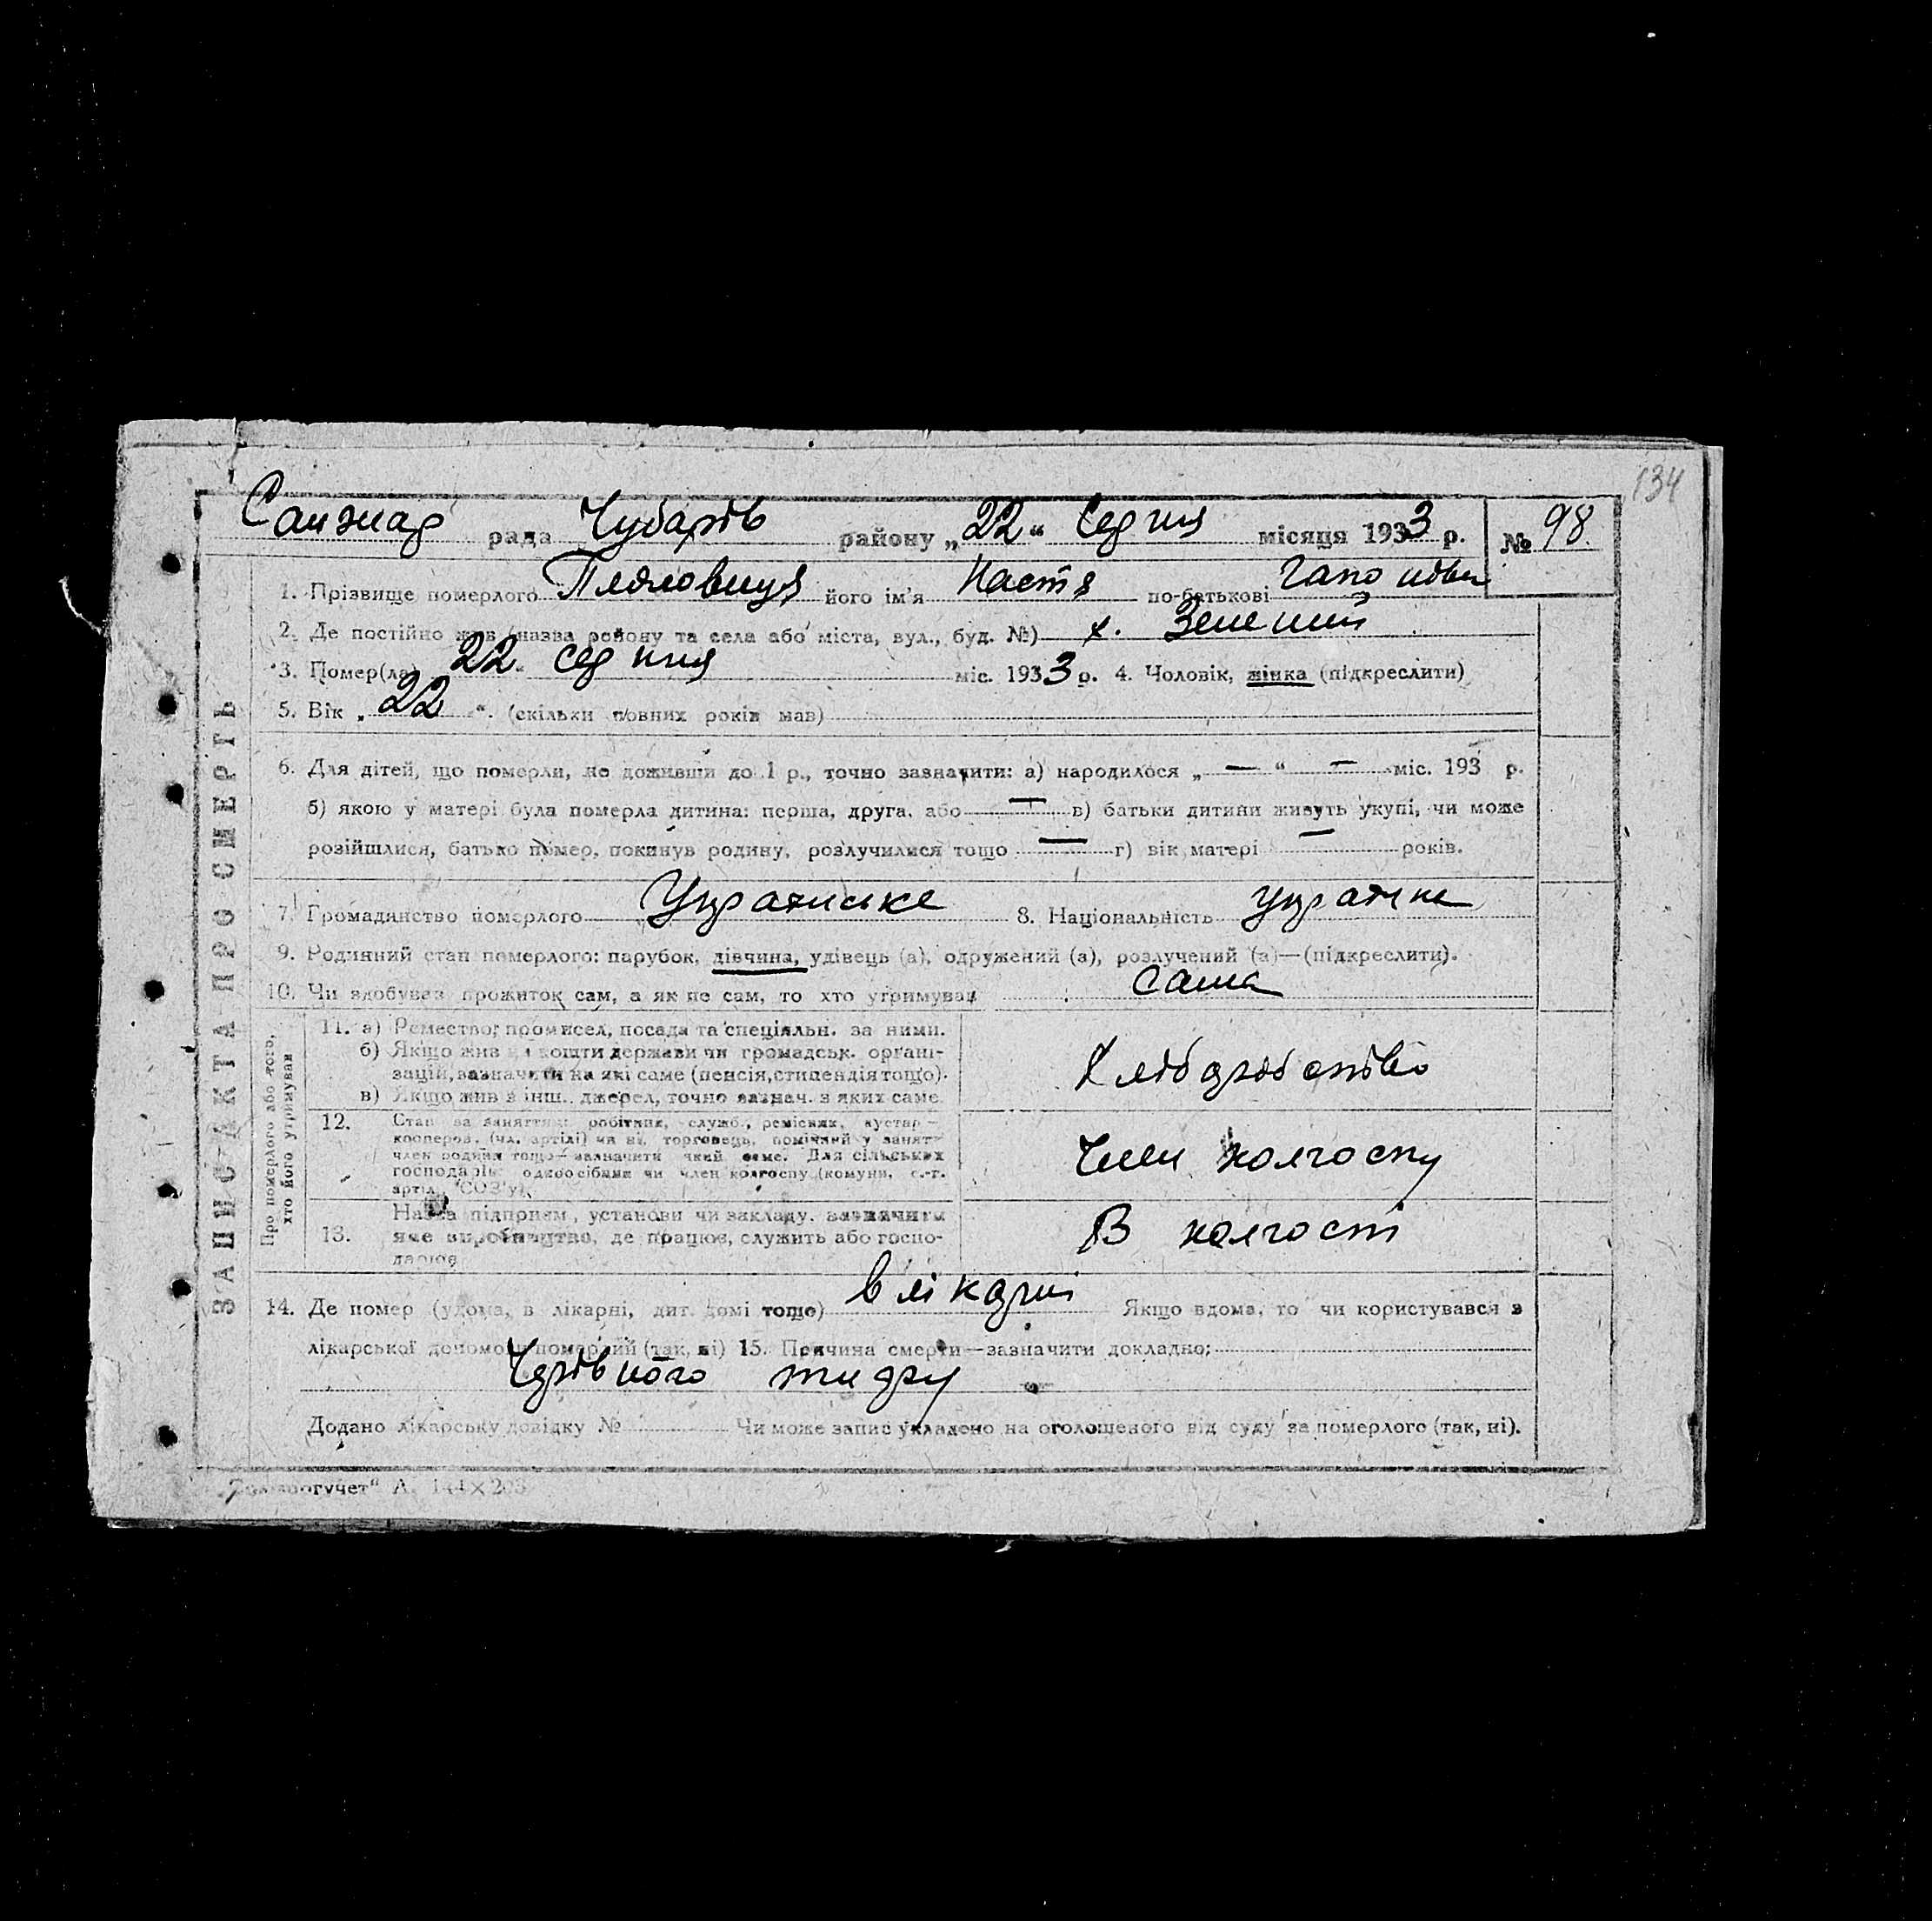 134
Санжар рада Чубарів району „22“ Серпня місяця 1933 р. № 98
1. Прізвище померлого його ім'я Настя по-батькові
2. Де постійно жив (назва району та села або міста, вул., буд. №) х. Зелений
3. Помер(ла) 22 серпня міс. 1933 р. 4. Чоловік, жінка (підкреслити)
5. Вік „22“. (скільки повних років мав)
6. Для дітей, що померли, не доживши до 1 р., точно зазначити: а) народилося „ — “ — міс. 193 р.
б) якою у матері була померла дитина: перша, друга, або — в) батьки дитини живуть укупі, чи може
розійшлися, батько помер, покинув родину, розлучилися тощо — г) вік матері — років.
7. Громадянство померлого Українське 8. Національність українка
9. Родинний стан померлого: парубок, дівчина, удівець (а), одружений (а), розлучений (а)—(підкреслити).
10. Чи здобував прожиток сам, а як не сам, то хто утримував сама
ЗАПИС АКТА ПРО СМЕРТЬ
Про померлого або того, хто його утримував
11. а) Ремество, промисел, посада та спеціяльн. за ними.
б) Якщо жив на кошти держави чи громадськ. органі-
зацій, зазначити на які саме (пенсія, стипендія тощо).
в) Якщо жив з інш. джерел, точно зазнач. з яких саме.
Хліборобство
12. Стан за заняттям: робітник, служб., ремісник, кустар—
кооперов. (чл. артілі) чи ні, торговець, помічний у занятт.
член родини тощо—зазначити який саме. Для сільських
господарів: одноосібник чи член колгоспу (комуни, с.-г.
артіл., СОЗ'у)
Член колгоспу
13. Назва підприєм., установи чи закладу, зазначити
яке виробництво, де працює, служить або госпо-
дарює
В колгоспі
14. Де помер (удома, в лікарні, дит. домі тощо) в лікарні Якщо вдома, то чи користувався з
лікарської допомоги померлий (так, ні) 15. Причина смерти—зазначити докладно:
тифу
Додано лікарську довідку № Чи може запис укладено на оголошеного від суду за померлого (так, ні).
А. 144×205